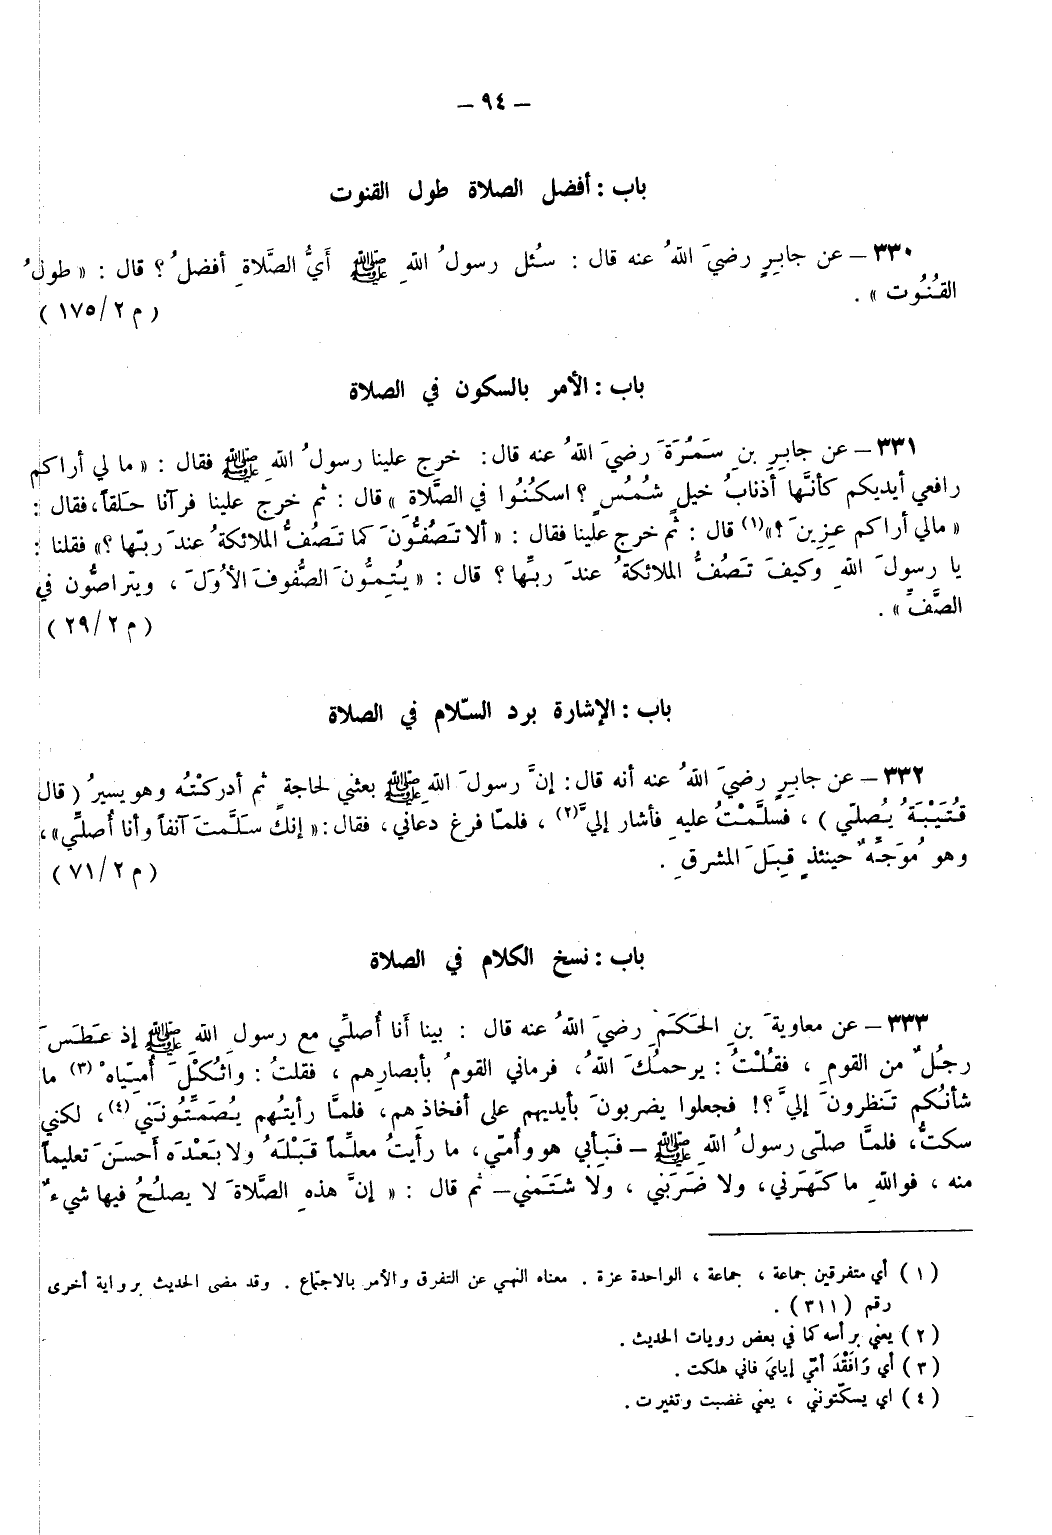 – ٩٤ –
باب : أفضل الصلاة طول القنوت
٣٣٠ – عن جابِرٍ رضيَ اللهُ عنه قال : سُئل رسولُ اللهِ ﷺ أَيُّ الصَّلاةِ أفضلُ ؟ قال : « طولُ
القُنُوت » .
( م ٢/ ١٧٥ )
باب : الأمر بالسكون في الصلاة
٣٣١ – عن جابِرِ بنِ سَمُرَةَ رضيَ اللهُ عنه قال : خرج علينا رسولُ اللهِ ﷺ فقال : « ما لي أراكم
رافعي أيديكم كأنَّها أذنابُ خيلٍ شُمُسٍ ؟ اسكُنُوا في الصَّلاة » قال : ثم خرج علينا فرآنا حلَقاً ، فقال :
« مالي أراكم عزِينَ ؟! »(١) قال : ثم خرج علينا فقال : « ألا تَصُفُّونَ كما تَصُفُّ الملائكةُ عندَ ربّها ؟ » فقلنا :
يا رسولَ اللهِ وكيفَ تَصُفُّ الملائكةُ عندَ ربِّها ؟ قال : « يُتِمُّونَ الصُّفوفَ الأُوَلَ ، ويتراصُّون في
الصَّفِّ » .
( م ٢/ ٢٩ )
باب : الإشارة برد السّلام في الصلاة
٣٣٢ – عن جابِرٍ رضيَ اللهُ عنه أنه قال : إنَّ رسولَ اللهِ ﷺ بعثني لحاجةٍ ثم أدركتُه وهو يسيرُ ( قال
قُتَيْبَةُ يُصلّي ) ، فسلَّمْتُ عليهِ فأشار إليَّ(٢) ، فلمّا فرغ دعاني ، فقال : « إنك سلَّمتَ آنفاً وأنا أُصلِّي » ،
وهو مُوَجِّهٌ حينئذٍ قِبَلَ المشرقِ .
( م ٢/ ٧١ )
باب : نسخ الكلام في الصلاة
٣٣٣ – عن معاويةَ بنِ الحَكَمِ رضيَ اللهُ عنه قال : بينا أنا أُصلِّي مع رسولِ اللهِ ﷺ إذ عَطَسَ
رجُلٌ من القومِ ، فقُلْتُ : يرحمُكَ اللهُ ، فرماني القومُ بأبصارِهم ، فقلتُ : واثُكْلَ أُمِّيَاهْ (٣) ما
شأنُكُم تَنظرونَ إليَّ ؟! فجعلوا يضربونَ بأيديهم على أفخاذِهم ، فلمَّا رأيتُهم يُصَمِّتُونَني(٤) ، لكني
سكتُّ ، فلمَّا صلّى رسولُ اللهِ ﷺ – فبأبي هو وأُمّي ، ما رأيتُ معلِّماً قَبْلَهُ ولا بَعْدَه أحسَنَ تعليماً
منه ، فواللهِ ما كَهَرني ، ولا ضَرَبَني ، ولا شَتَمَني – ثم قال : « إنَّ هذهِ الصَّلاةَ لا يصلُحُ فيها شيءٌ
( ١ ) أي متفرقين جماعة ، جماعة ، الواحدة عزة . معناه النهي عن التفرق والأمر بالاجتماع . وقد مضى الحديث برواية أخرى
رقم ( ٣١١ ) .
( ٢ ) يعني برأسه كما في بعض رويات الحديث .
( ٣ ) أي وَافَقْدَ أمّي إيايَ فاني هلكت .
( ٤ ) اي يسكّتونني ، يعني غضبت وتغيرت .